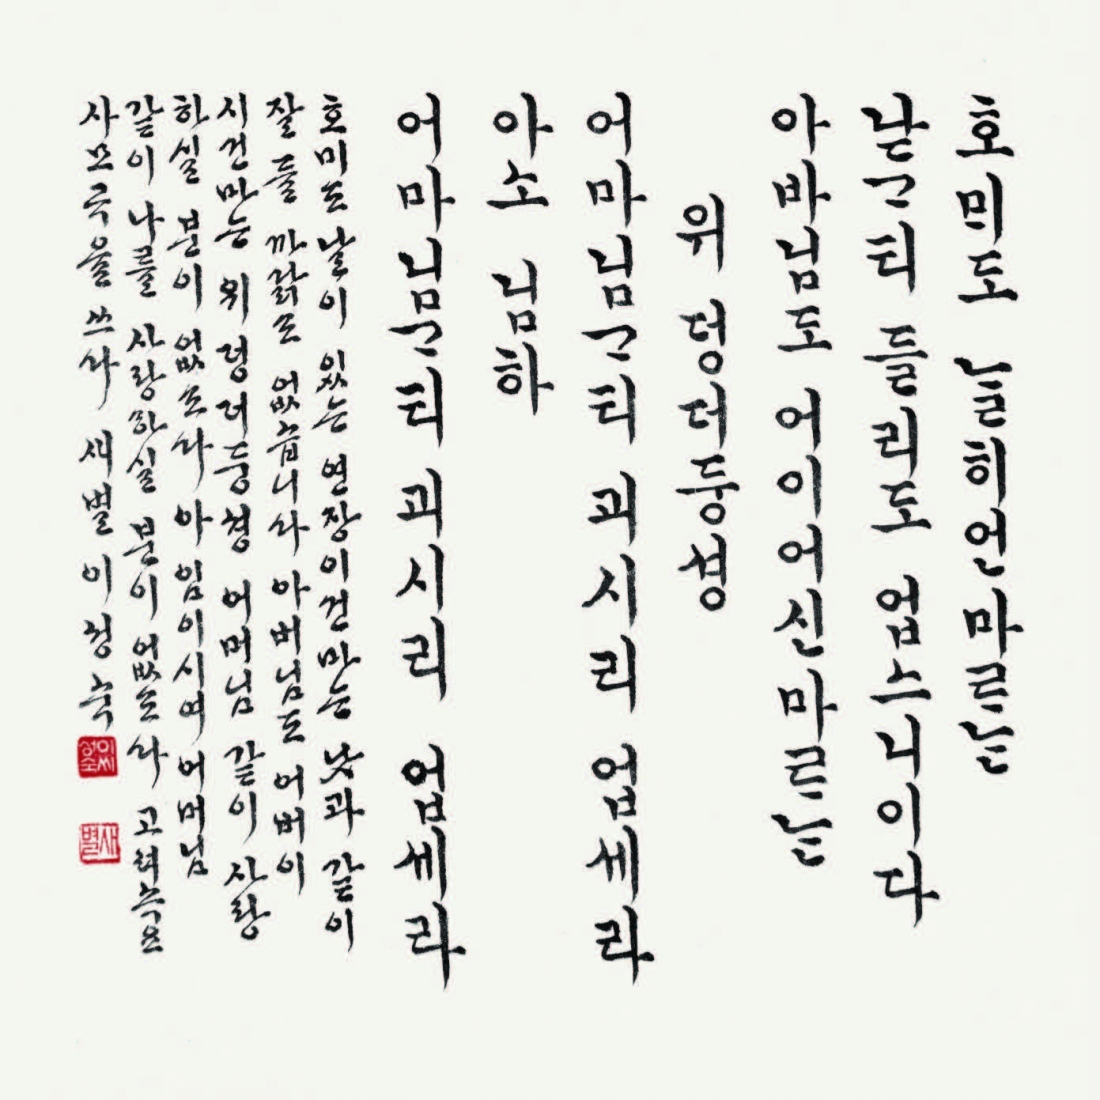 호ᄆᆡ도 ᄂᆞᆯ히언마ᄅᆞᄂᆞᆫ
낟ᄀᆞ티 들리도 업스니이다
아바님도 어이어신마ᄅᆞᄂᆞᆫ
위 덩더둥셩
어마님ᄀᆞ티 괴시리 업세라
아소 님하
어마님ᄀᆞ티 괴시리 업세라
호미도 날이 있는 연장이건마는 낫과 같이
잘 들 까닭도 없습니다 아버님도 어버이
시건마는 위 덩더둥셩 어머님 같이 사랑
하실 분이 없도다 아 임이시여 어머님
같이 나를 사랑하실 분이 없도다 고려속요
사모곡을 쓰다 새별 이성숙
새별